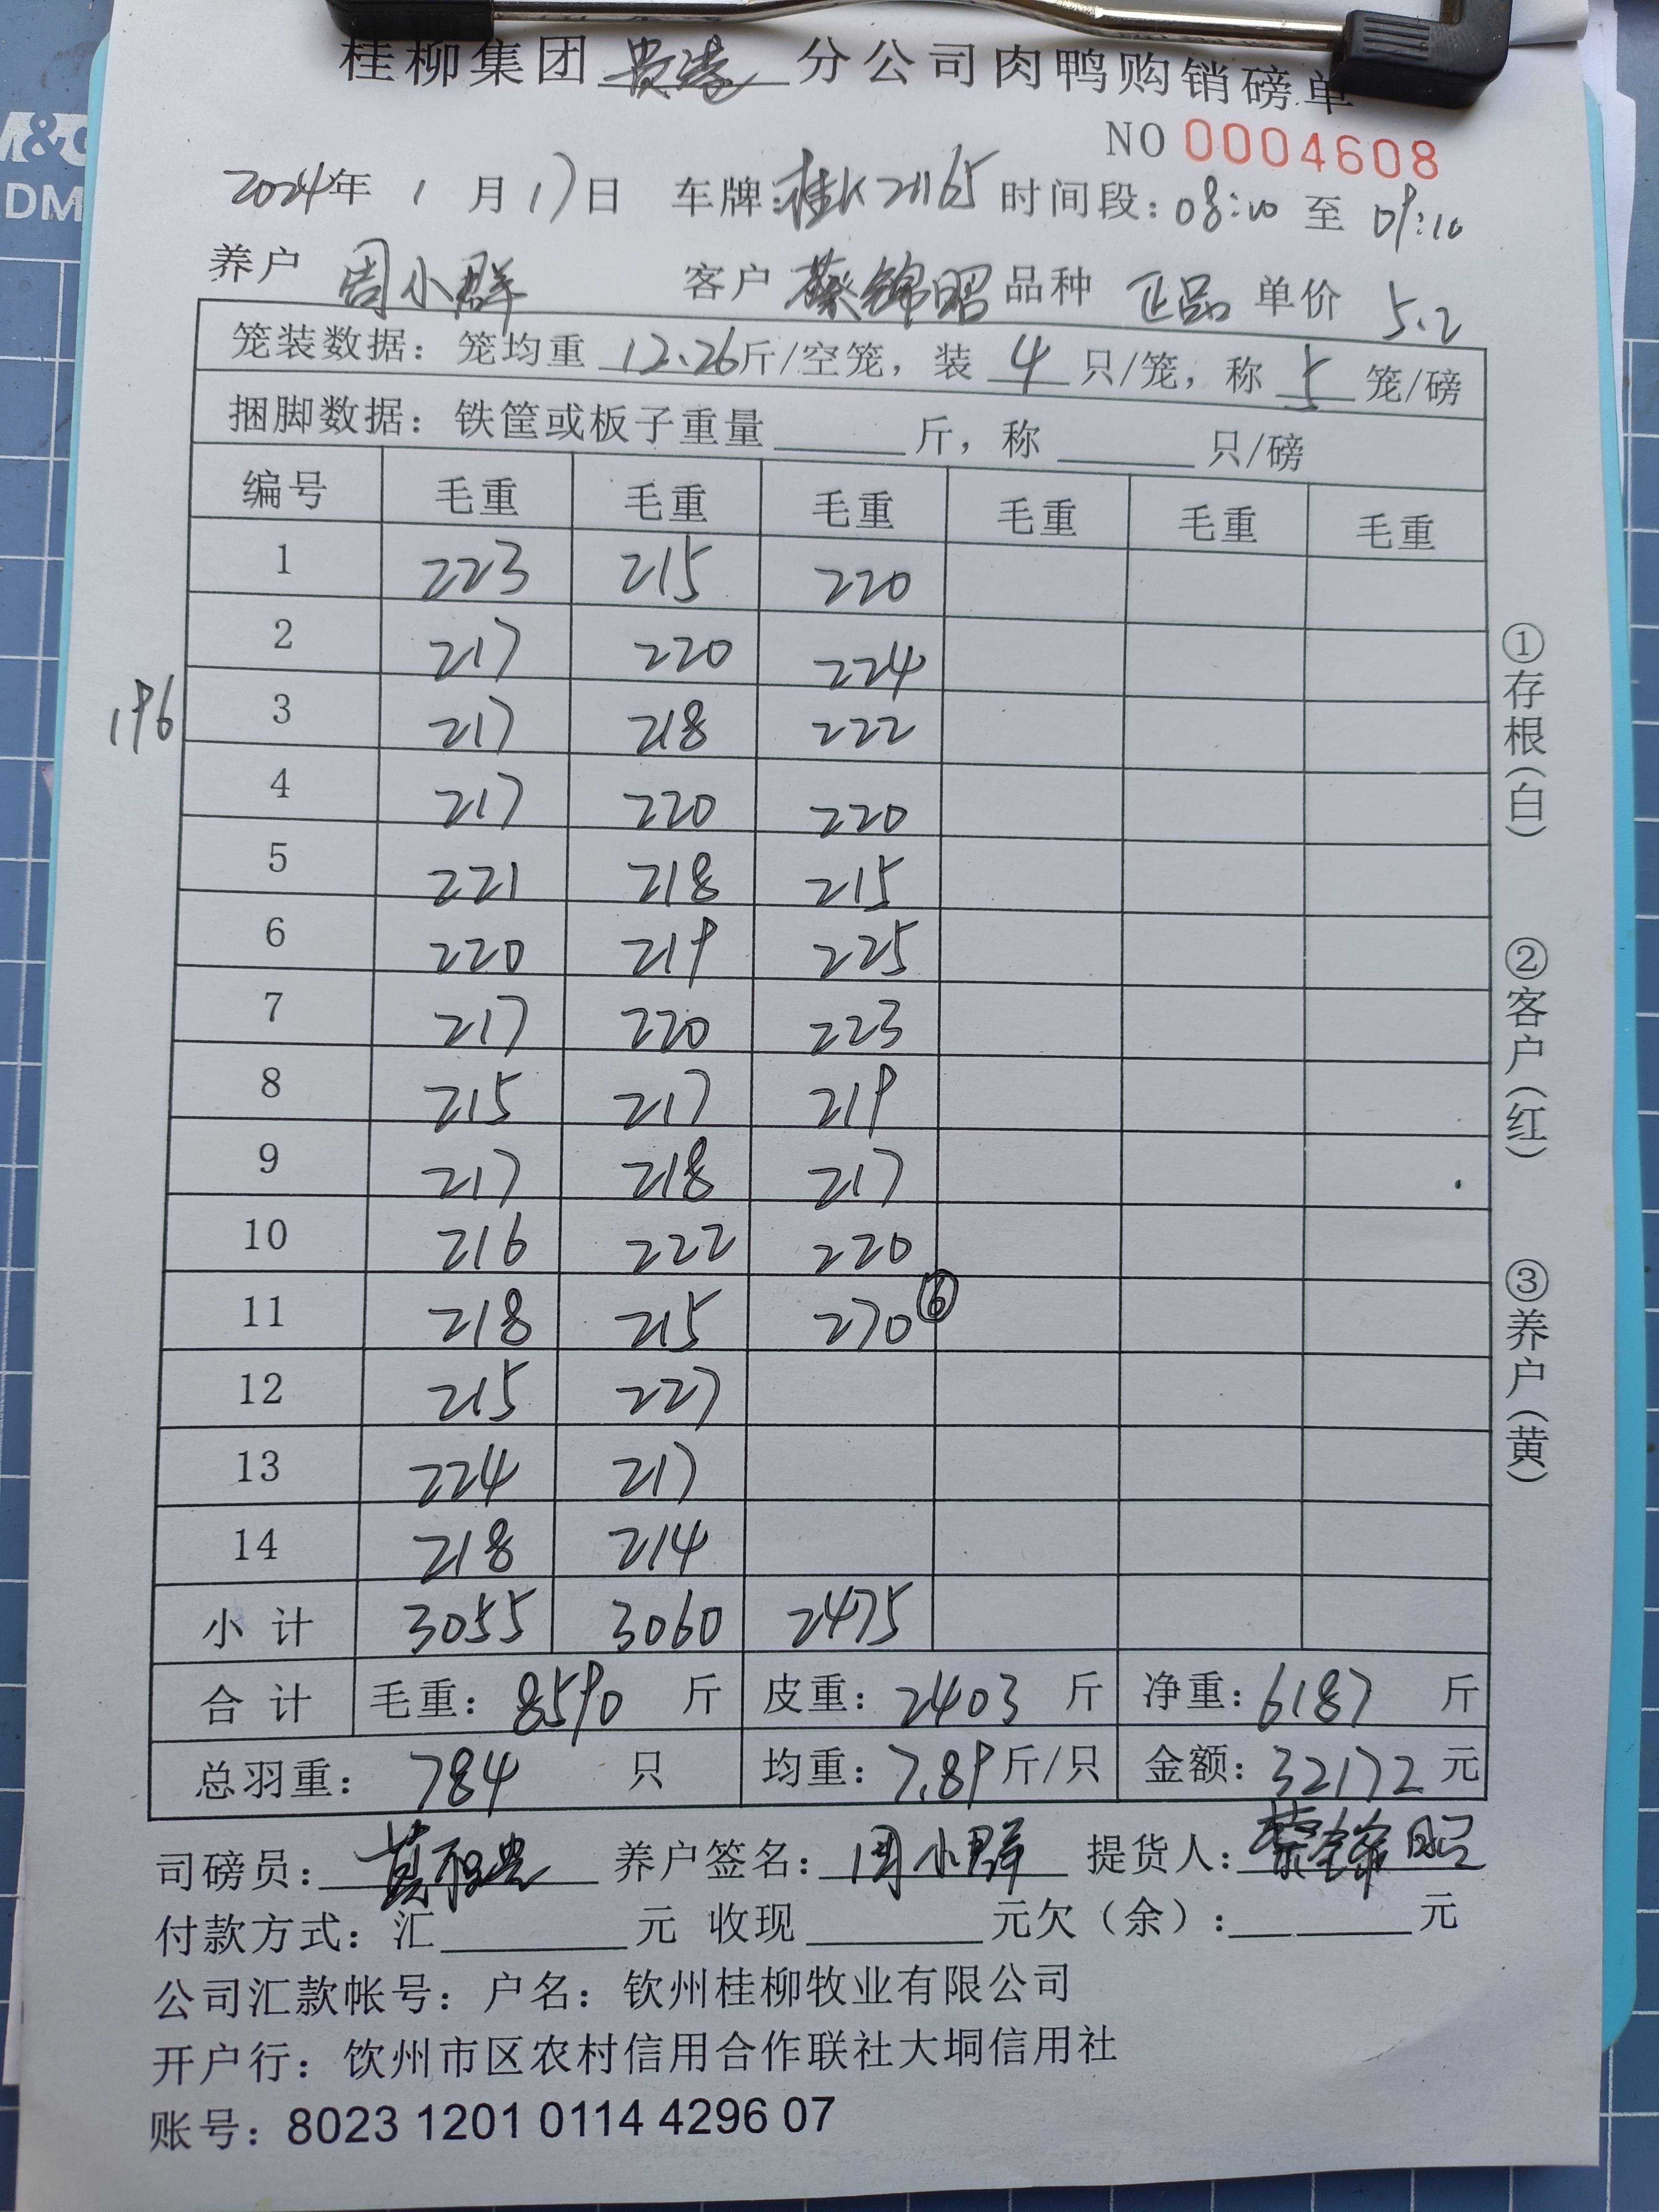 桂柳集团 贵港 分公司肉鸭购销磅单
NO 0004608
2024年 1 月 17日 车牌:桂K21165 时间段: 08:10 至 09:10
养户 周小群 客户 蔡锦昭 品种 正品 单价 5.2
笼装数据: 笼均重 12.26斤/空笼, 装 4 只/笼, 称 5 笼/磅
捆脚数据: 铁筐或板子重量______斤, 称______只/磅
编号 毛重 毛重 毛重 毛重 毛重 毛重
1 223 215 220
2 217 220 224
196
3 217 218 222
4 217 220 220
5 221 218 215
6 220 219 225
7 217 220 223
8 215 217 219
9 217 218 217
10 216 222 220
11 218 215 270 ⑥
12 215 227
13 224 217
14 218 214
小 计 3055 3060 2475
合 计 毛重: 8590 斤 皮重: 2403 斤 净重: 6187 斤
总羽重: 784 只 均重: 7.89斤/只 金额: 32172 元
司磅员: 养户签名: 周小群 提货人: 蔡锦昭
付款方式: 汇______元 收现______元欠（余）:______元
公司汇款帐号: 户名: 钦州桂柳牧业有限公司
开户行: 钦州市区农村信用合作联社大垌信用社
账号: 8023 1201 0114 4296 07
①存根（白）
②客户（红）
③养户（黄）
M&G